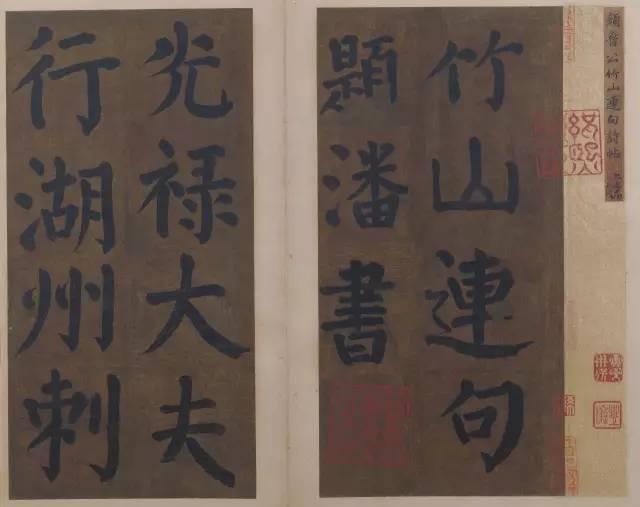 顔魯公竹山連句詩帖
竹山連句
題潘書
光祿大夫
行湖州刺